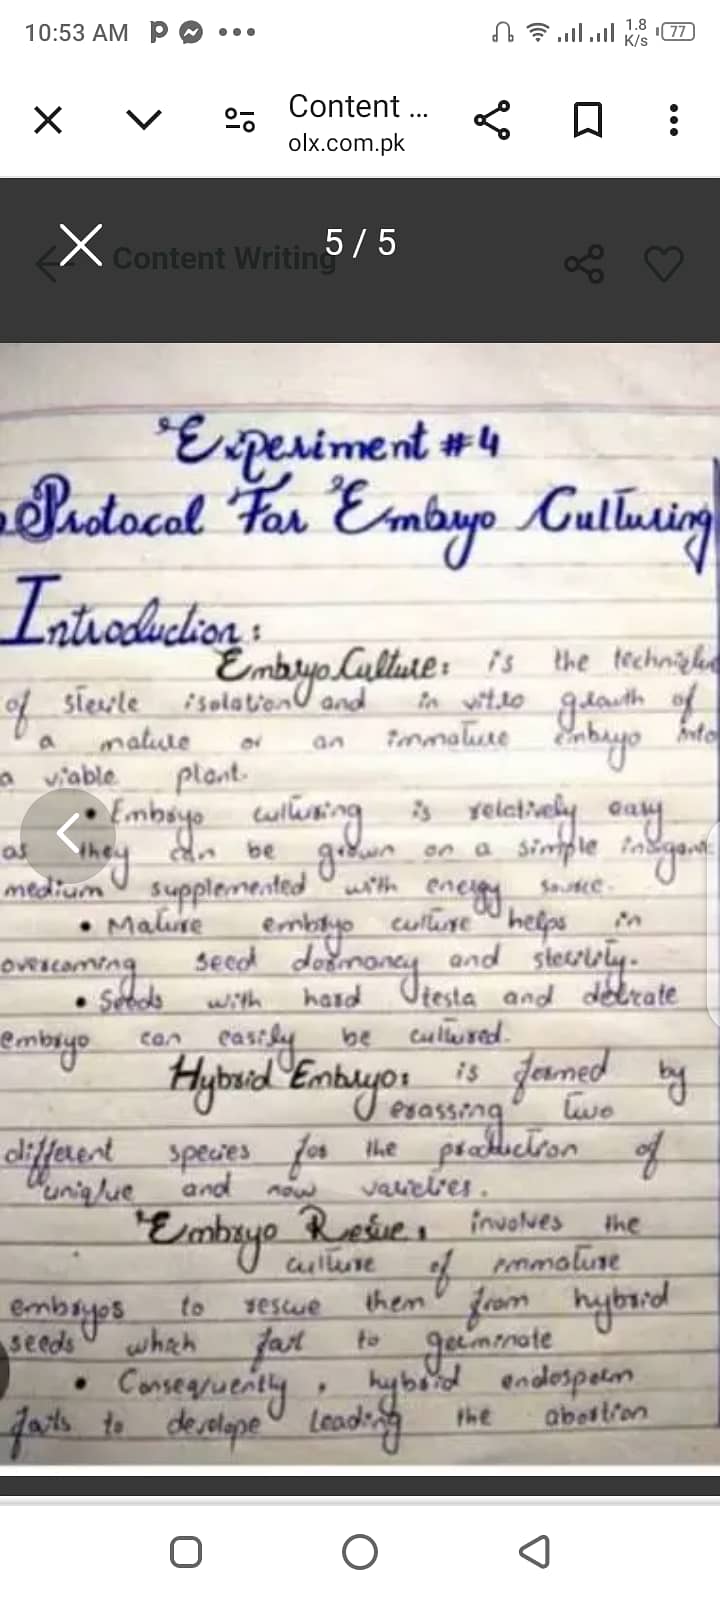 10:53 AM
1.8 K/s
77
Content ...
olx.com.pk
Content Writing
5 / 5
Experiment #4
Protocal For Embryo Culturing
Introduction:
Embryo Culture: is the technique
of sterile isolation and in vitro growth of
a mature or an immature embryo into
a viable plant.
• Embryo culturing is relatively easy
as they can be grown on a simple inorganic
medium supplemented with energy source.
• Mature embryo culture helps in
overcoming seed dormancy and sterility.
• Seeds with hard testa and delicate
embryo can easily be cultured.
Hybrid Embryo: is formed by
crossing two
different species for the production of
unique and new varieties.
Embryo Resue: involves the
culture of immature
embryos to rescue them from hybrid
seeds which fail to germinate
• Consequently, hybrid endosperm
fails to develope leading the abortion